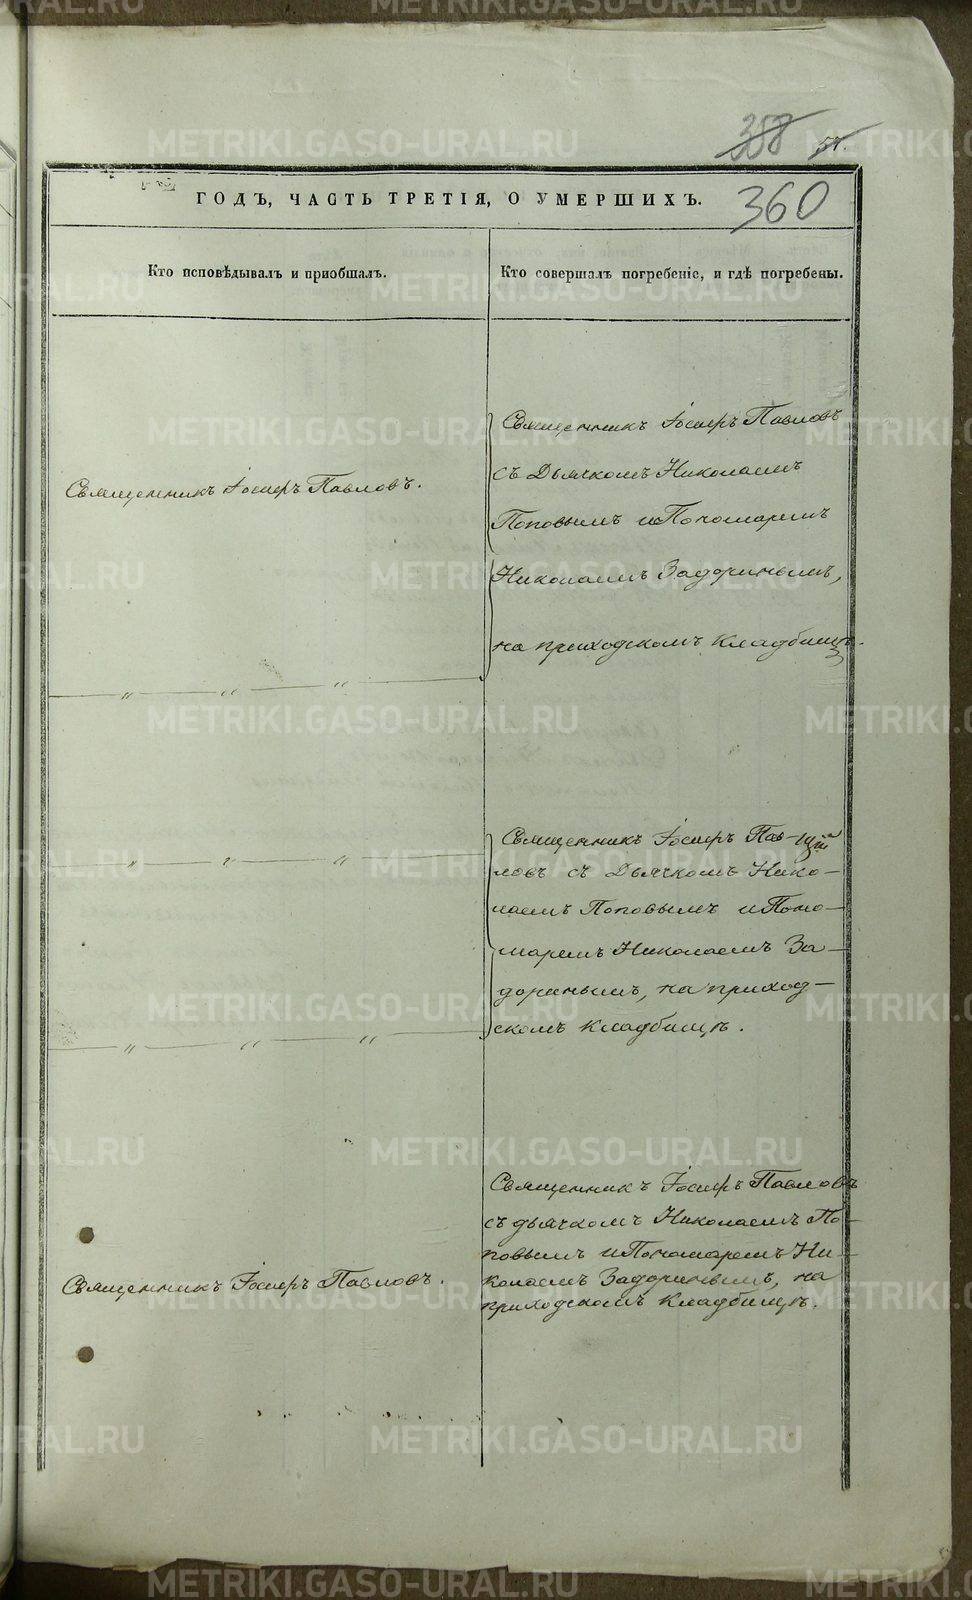 358 57.
ГОДЪ, ЧАСТЬ ТРЕТІЯ, О УМЕРШИХЪ.
360
Кто исповѣдывалъ и пріобщалъ.
Кто совершалъ погребеніе, и гдѣ погребены.
Священникъ Іосифъ Павловъ.
Священникъ Іосифъ Павловъ
съ Дьячкомъ Николаемъ
Поповымъ и Пономаремъ
Николаемъ Задоринымъ,
на приходскомъ кладбищѣ.
Священникъ Іосифъ Пав-
ловъ съ Дьячкомъ Нико-
лаемъ Поповымъ и Поно-
маремъ Николаемъ За-
доринымъ, на приход-
скомъ кладбищѣ.
Священникъ Іосифъ Павловъ.
Священникъ Іосифъ Павловъ
съ дьячкомъ Николаемъ По-
повымъ и Пономаремъ Ни-
колаемъ Задоринымъ, на
приходскомъ кладбищѣ.
METRIKI.GASO-URAL.RU